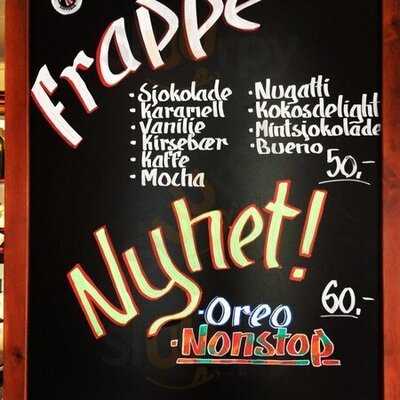 Frappe
· Sjokolade
· Karamell
· Vanilje
· Kirsebær
· Kaffe
· Mocha
· Nugatti
· Kokosdelight
· Mintsjokolade
· Bueno
50,-
Nyhet!
60,-
· Oreo
· Nonstop